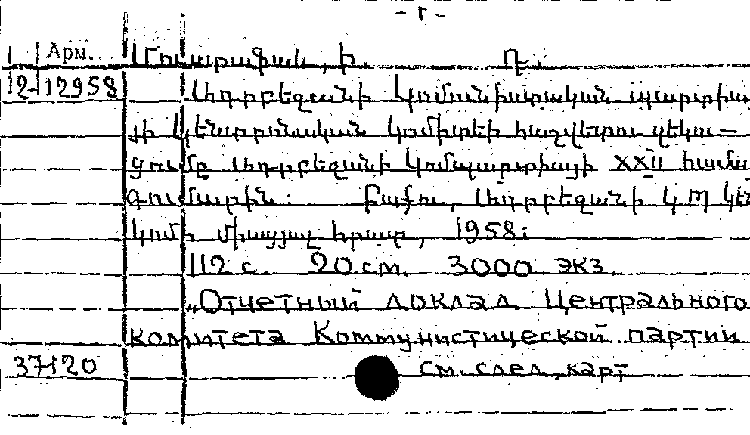 - 1 -
Арм.
Մուստաֆաև, Ի. Դ.
12-12958 Ադրբեջանի կոմունիստական պարտիա-
յի Կենտրոնական կոմիտեի հաշվետու զեկու-
ցումը Ադրբեջանի կոմպարտիայի XXII համա
գումարին: Բաքու, Ադրբեջանի ԿՊ Կե
կոմի միացյալ հրատ, 1958:
112 с. 20 см. 3000 экз.
„Отчетный доклад Центрального
комитета Коммунистической партии
37120 см. след. карт